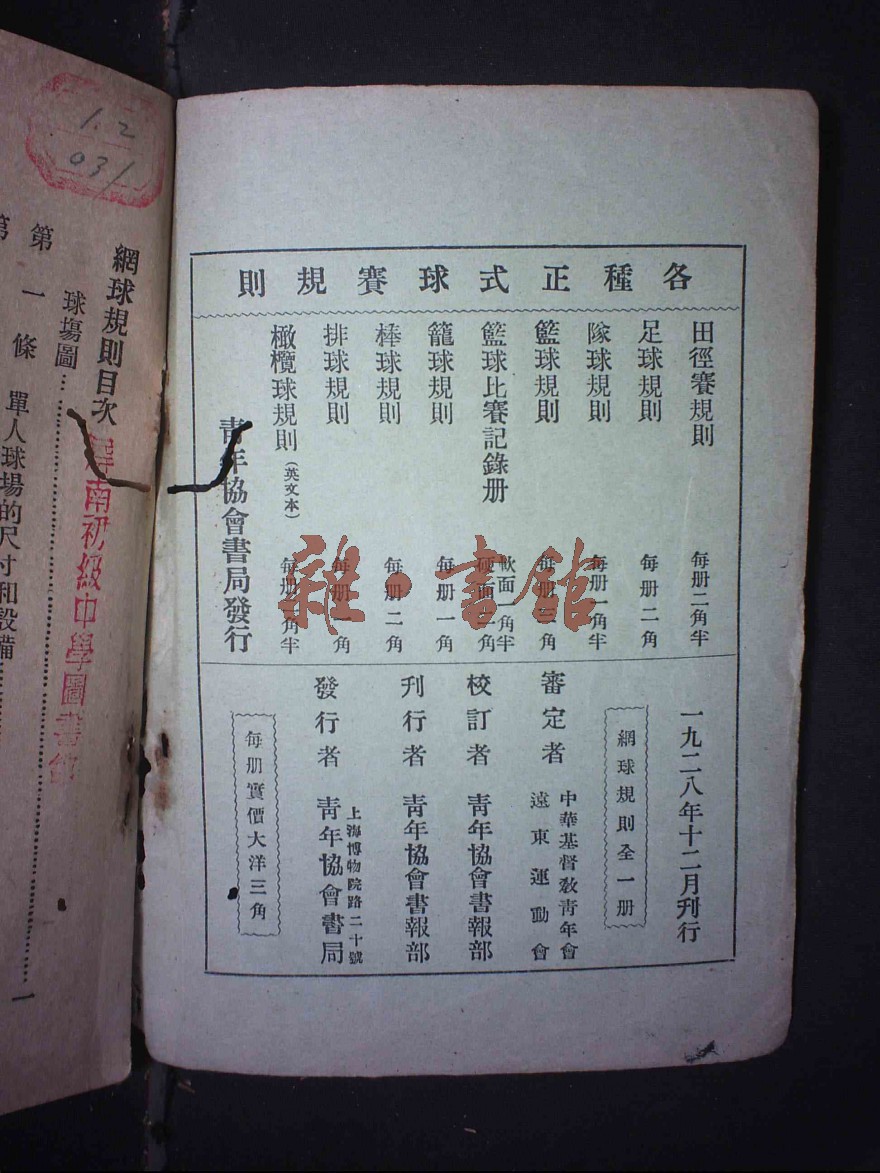 各種正式球賽規則
田徑賽規則 每册二角半
足球規則 每册二角
隊球規則 每册一角半
籃球規則 每册三角
籃球比賽記錄册 軟面一角半 硬面二角
籠球規則 每册一角
棒球規則 每册二角
排球規則 每册一角
橄欖球規則(英文本) 每册二角半
青年協會書局發行
一九二八年十二月刊行
網球規則全一册
審定者 中華基督敎青年會 遠東運動會
校訂者 青年協會書報部
刊行者 青年協會書報部
發行者 上海博物院路二十號 青年協會書局
每册實價大洋三角
雜·書館
1.2
031
網球規則目次
南初級中學圖書館
球塲圖
第一條 單人球場的尺寸和設備 一
第